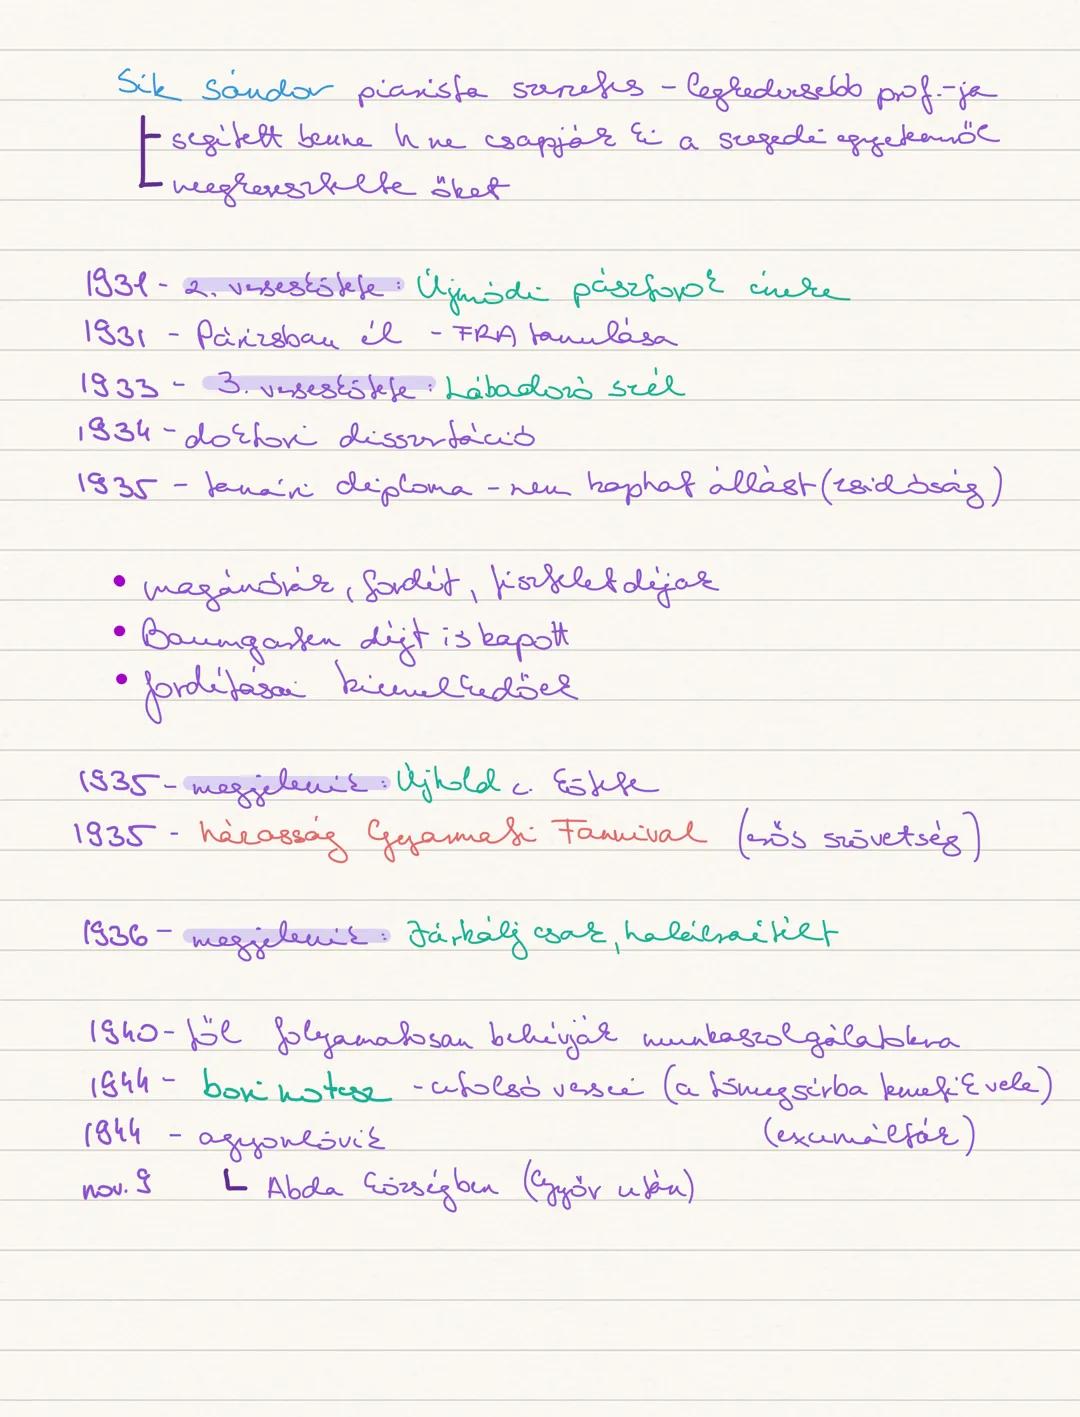 Sík Sándor piarista szerzetes - legkedvesebb prof.-ja
segített benne h ne csapják ki a szegedi egyetemről
megkeresztelte őket
1931 - 2. verseskötete: Újmódi pásztorok éneke
1931 - Párizsban él - FRA tanulása
1933 - 3. verseskötete: Lábadozó szél
1934 - doktori disszertáció
1935 - tanári diploma - nem kaphat állást (zsidóság)
• magánórák, fordít, tiszteletdíjak
• Baumgarten díjt is kapott
• fordításai kiemelkedőek
1935 - megjelenik: Újhold c. kötete
1935 - házasság Gyarmati Fannival (erős szövetség)
1936 - megjelenik: Járkálj csak, halálraítélt
1940-től folyamatosan behívják munkaszolgálatokra
1944 - bori notesz - utolsó versei (a tömegsírba temetik vele)
1844 - agyonlövik (exumálták)
nov. 9 Abda községben (Győr után)